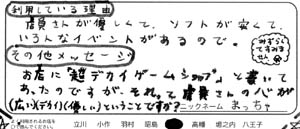 利用している理由
店員さんが優しくて、ソフトが安くて、
いろんなイベントがあるので。
みむだ
してすみま
せん
その他メッセージ
お店に「超デカイゲームショップ」と書いて
あったのですが、それって店員さんの心が
(広い)(デカイ)(優しい)ということですか?
ニックネーム まっちゃ
立川 小作 羽村 昭島 高幡 堀之内 八王子